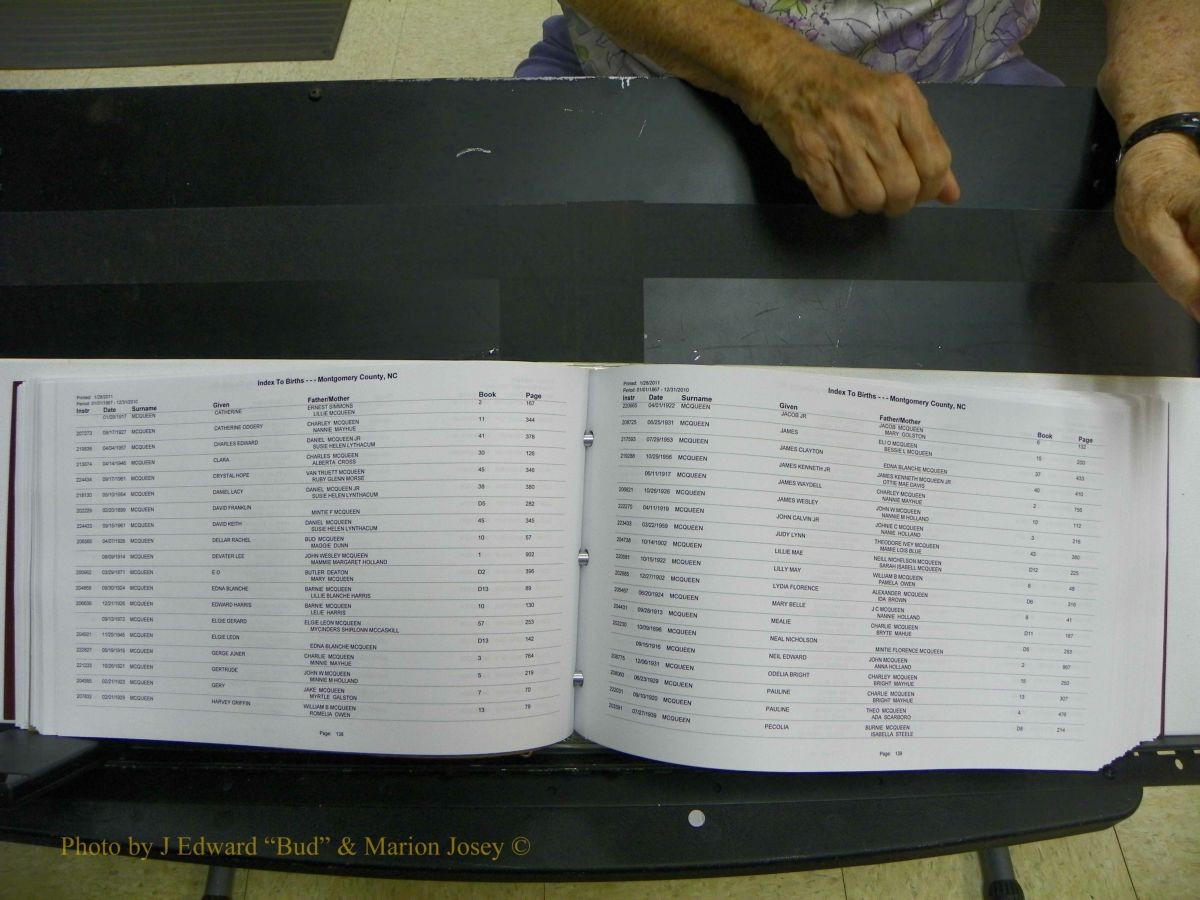 Index To Births - - - Montgomery County, NC
Printed: 1/28/2011
Period: 01/01/1867 - 12/31/2010
Instr Date Surname Given Father/Mother Book Page
01/20/1917 MCQUEEN CATHERINE ERNEST SIMMONS 2 167
LILLIE MCQUEEN
207273 09/17/1927 MCQUEEN CATHERINE ODGERY CHARLEY MCQUEEN 11 344
NANNIE MAYHUE
04/04/1957 MCQUEEN CHARLES EDWARD DANIEL MCQUEEN JR 41 378
SUSIE HELEN LYTHACUM
213074 04/14/1946 MCQUEEN CLARA CHARLES MCQUEEN 30 126
ALBERTA CROSS
224434 09/17/1961 MCQUEEN CRYSTAL HOPE VAN TRUETT MCQUEEN 45 346
RUBY GLENN MORSE
218130 05/10/1954 MCQUEEN DANIEL LACY DANIEL MCQUEEN JR 38 380
SUSIE HELEN LYNTHACUM
202229 02/20/1899 MCQUEEN DAVID FRANKLIN D5 282
MINTIE F MCQUEEN
224433 09/15/1961 MCQUEEN DAVID KEITH DANIEL MCQUEEN 45 345
SUSIE HELEN LYNTHACUM
206565 04/07/1926 MCQUEEN DELLAR RACHEL BUD MCQUEEN 10 57
MAGGIE DUNN
08/09/1914 MCQUEEN DEVATER LEE JOHN WESLEY MCQUEEN 1 902
MAMMIE MARGARET HOLLAND
200962 03/29/1871 MCQUEEN E O BUTLER DEATON D2 396
MARY MCQUEEN
204858 09/30/1924 MCQUEEN EDNA BLANCHE BARNIE MCQUEEN D13 89
LILLIE BLANCHE HARRIS
206636 12/21/1926 MCQUEEN EDWARD HARRIS BARNIE MCQUEEN 10 130
LELIE HARRIS
09/13/1972 MCQUEEN ELGIE GERARD ELGIE LEON MCQUEEN 57 253
MYCINDERS SHIRLONN MCCASKILL
204921 11/25/1945 MCQUEEN ELGIE LEON D13 142
EDNA BLANCHE MCQUEEN
222827 05/19/1919 MCQUEEN GERGE JUNER CHARLIE MCQUEEN 3 764
MINNIE MAYHUE
221223 10/26/1921 MCQUEEN GERTRUDE JOHN W MCQUEEN 5 219
MINNIE M HOLLAND
204565 02/21/1923 MCQUEEN GERY JAKE MCQUEEN 7 70
MYRTLE GALSTON
207833 02/01/1929 MCQUEEN HARVEY GRIFFIN WILLIAM B MCQUEEN 13 79
ROMELIA OWEN
Page: 138
Index To Births - - - Montgomery County, NC
Printed: 1/28/2011
Period: 01/01/1867 - 12/31/2010
Instr Date Surname Given Father/Mother Book Page
220665 04/21/1922 MCQUEEN JACOB JR JACOB MCQUEEN 6 132
MARY GOLSTON
208725 06/25/1931 MCQUEEN JAMES ELI O MCQUEEN 15 200
BESSIE L MCQUEEN
217593 07/29/1953 MCQUEEN JAMES CLAYTON 37 433
EDNA BLANCHE MCQUEEN
219288 10/29/1956 MCQUEEN JAMES KENNETH JR JAMES KENNETH MCQUEEN JR 40 410
OTTIE MAE DAVIS
06/11/1917 MCQUEEN JAMES WAYDELL CHARLEY MCQUEEN 2 756
NANNIE MAYHUE
206621 10/26/1926 MCQUEEN JAMES WESLEY JOHN W MCQUEEN 10 112
NANNIE M HOLLAND
222275 04/11/1919 MCQUEEN JOHN CALVIN JR JOHNIE C MCQUEEN 3 216
NANIE HOLLAND
223433 03/22/1959 MCQUEEN JUDY LYNN THEODORE IVEY MCQUEEN 43 360
MAMIE LOIS BLUE
204738 10/14/1902 MCQUEEN LILLIE MAE NEILL NICHOLSON MCQUEEN D12 225
SARAH ISABELL MCQUEEN
220581 10/15/1922 MCQUEEN LILLY MAY WILLIAM B MCQUEEN 6 48
PAMELA OWEN
202985 12/27/1902 MCQUEEN LYDIA FLORENCE ALEXANDER MCQUEEN D6 216
IDA BROWN
205467 06/20/1924 MCQUEEN MARY BELLE J C MCQUEEN 8 41
NANNIE HOLLAND
204431 09/28/1913 MCQUEEN MEALIE CHARLIE MCQUEEN D11 187
BRYTE MAHUE
202230 10/09/1896 MCQUEEN NEAL NICHOLSON D5 283
MINTIE FLORENCE MCQUEEN
09/15/1916 MCQUEEN NEIL EDWARD JOHN MCQUEEN 2 967
ANNA HOLLAND
208775 12/06/1931 MCQUEEN ODELIA BRIGHT CHARLEY MCQUEEN 15 250
BRIGHT MAYHUE
208060 06/23/1929 MCQUEEN PAULINE CHARLIE MCQUEEN 13 307
BRIGHT MAYHUE
222031 09/10/1920 MCQUEEN PAULINE THEO MCQUEEN 4 476
ADA SCARBORO
203591 07/27/1939 MCQUEEN PECOLIA BURNIE MCQUEEN D8 214
ISABELLA STEELE
Page: 139
Photo by J Edward “Bud” & Marion Josey ©